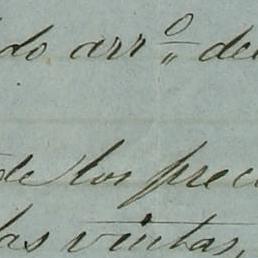 do arr.º de
de los prec
las vintas,